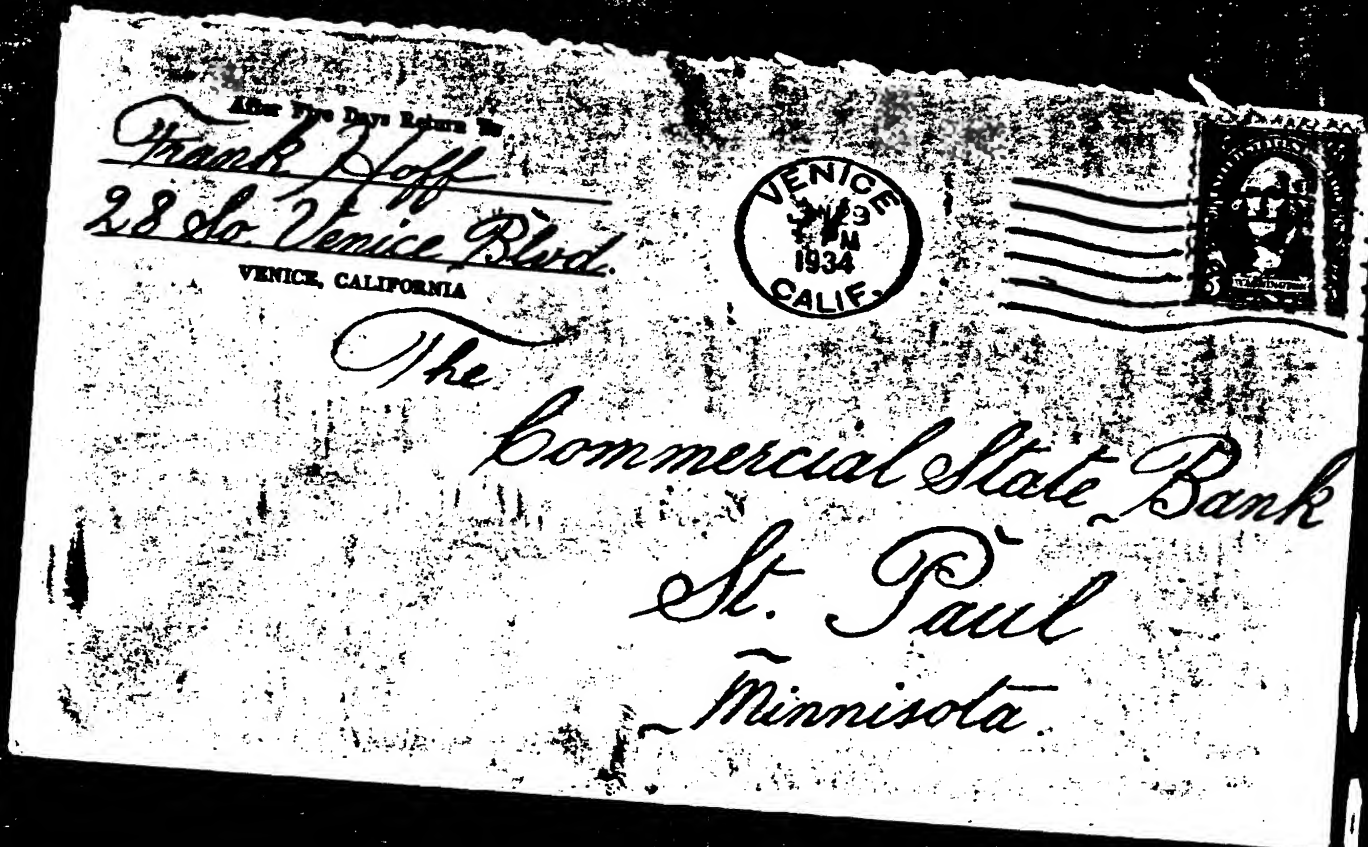 After Five Days Return To
Frank Hoff
28 So. Venice Blvd.
VENICE, CALIFORNIA
VENICE
23
PM
1934
CALIF.
3 WASHINGTON
The
Commercial State Bank
St. Paul
Minnisota.